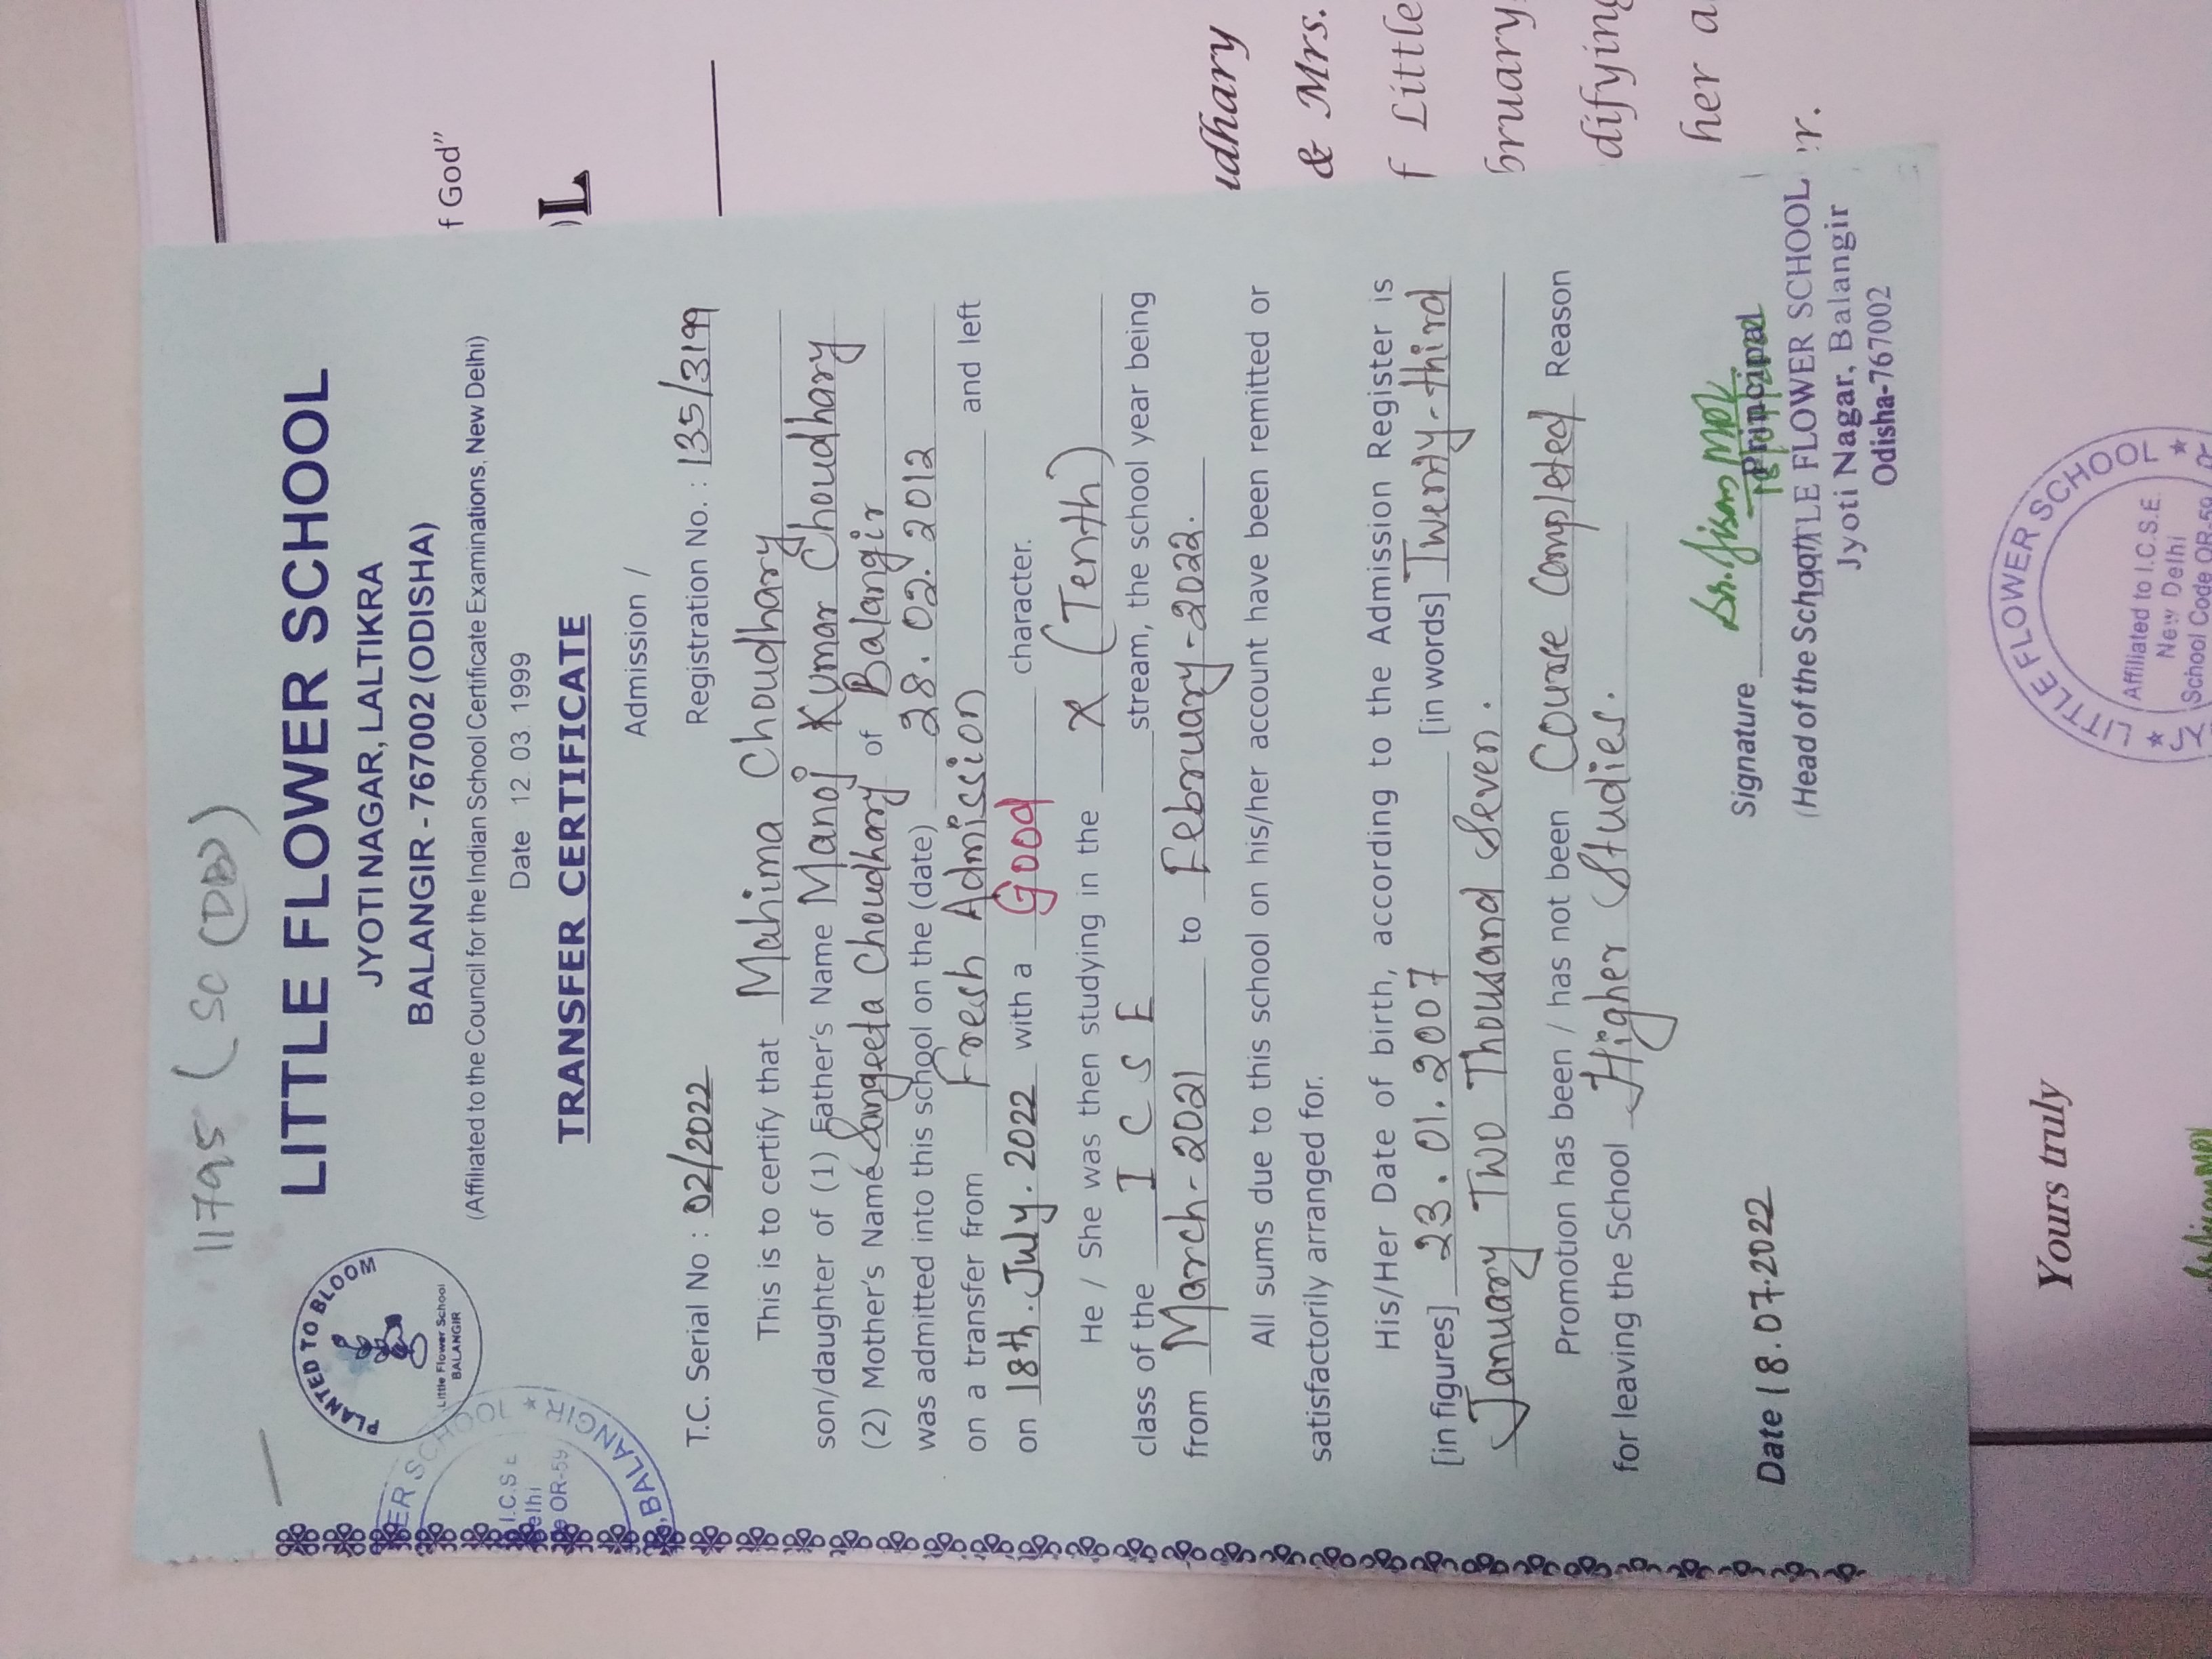 11795 (SC (DB))
PLANTED TO BLOOM
Little Flower School
BALANGIR
LITTLE FLOWER SCHOOL
JYOTI NAGAR, LALTIKRA
BALANGIR - 767002 (ODISHA)
(Affiliated to the Council for the Indian School Certificate Examinations, New Delhi)
Date 12. 03. 1999
TRANSFER CERTIFICATE
ER SCHOOL ★ BALANGIR
I.C.S E
elhi
e OR-59
Admission /
T.C. Serial No : 02/2022 Registration No. : 135/3199
This is to certify that Mahima Choudhary
son/daughter of (1) Father's Name Manoj Kumar Choudhary
(2) Mother's Name Sangeeta Choudhary of Balangir
was admitted into this school on the (date) 28. 02. 2012
on a transfer from Fresh Admission and left
on 18th. July. 2022 with a Good character.
He / She was then studying in the X (Tenth)
class of the I C S E stream, the school year being
from March-2021 to February-2022.
All sums due to this school on his/her account have been remitted or
satisfactorily arranged for.
His/Her Date of birth, according to the Admission Register is
[in figures] 23. 01. 2007 [in words] Twenty-third
January Two Thousand Seven.
Promotion has been / has not been Course Completed Reason
for leaving the School Higher Studies.
Date 18.07.2022
Signature
Principal
(Head of the School)
LITTLE FLOWER SCHOOL
Jyoti Nagar, Balangir
Odisha-767002
f God"
)L
udhary
& Mrs.
f Little
bruary,
difying
her a
r.
Yours truly
LITTLE FLOWER SCHOOL
Affiliated to I.C.S.E.
New Delhi
School Code OR-59